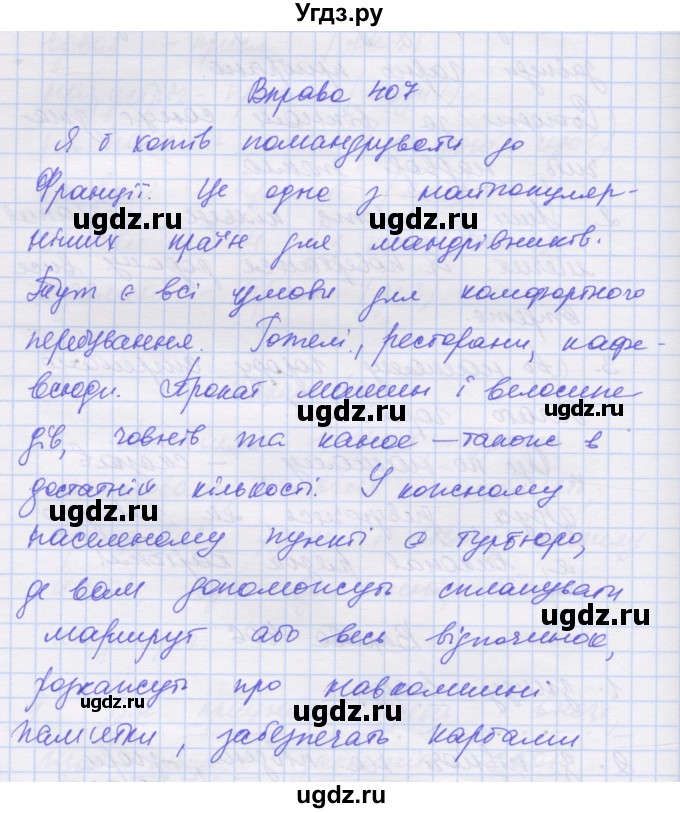 Угдз.ру
Вправа 407
Я б хотів помандрувати до
Франції. Це одне з найпопуляр-
ugdz.ru ugdz.ru
ніших країн для мандрівників.
Тут є всі умови для комфортного
перебування. Готелі, ресторани, кафе-
ugdz.ru
всюди. Прокат машин і велосипе
ugdz.ru ugdz.ru
дів, човнів та каное – також в
достатній кількості. У кожному
ugdz.ru
населеному пункті є турбюро,
де вам допоможуть спланувати
ugdz.ru
маршрут або весь відпочинок,
ugdz.ru
розкажуть про навколишні
ugdz.ru ugdz.ru
пам'ятки, забезпечать картами
ugdz.ru